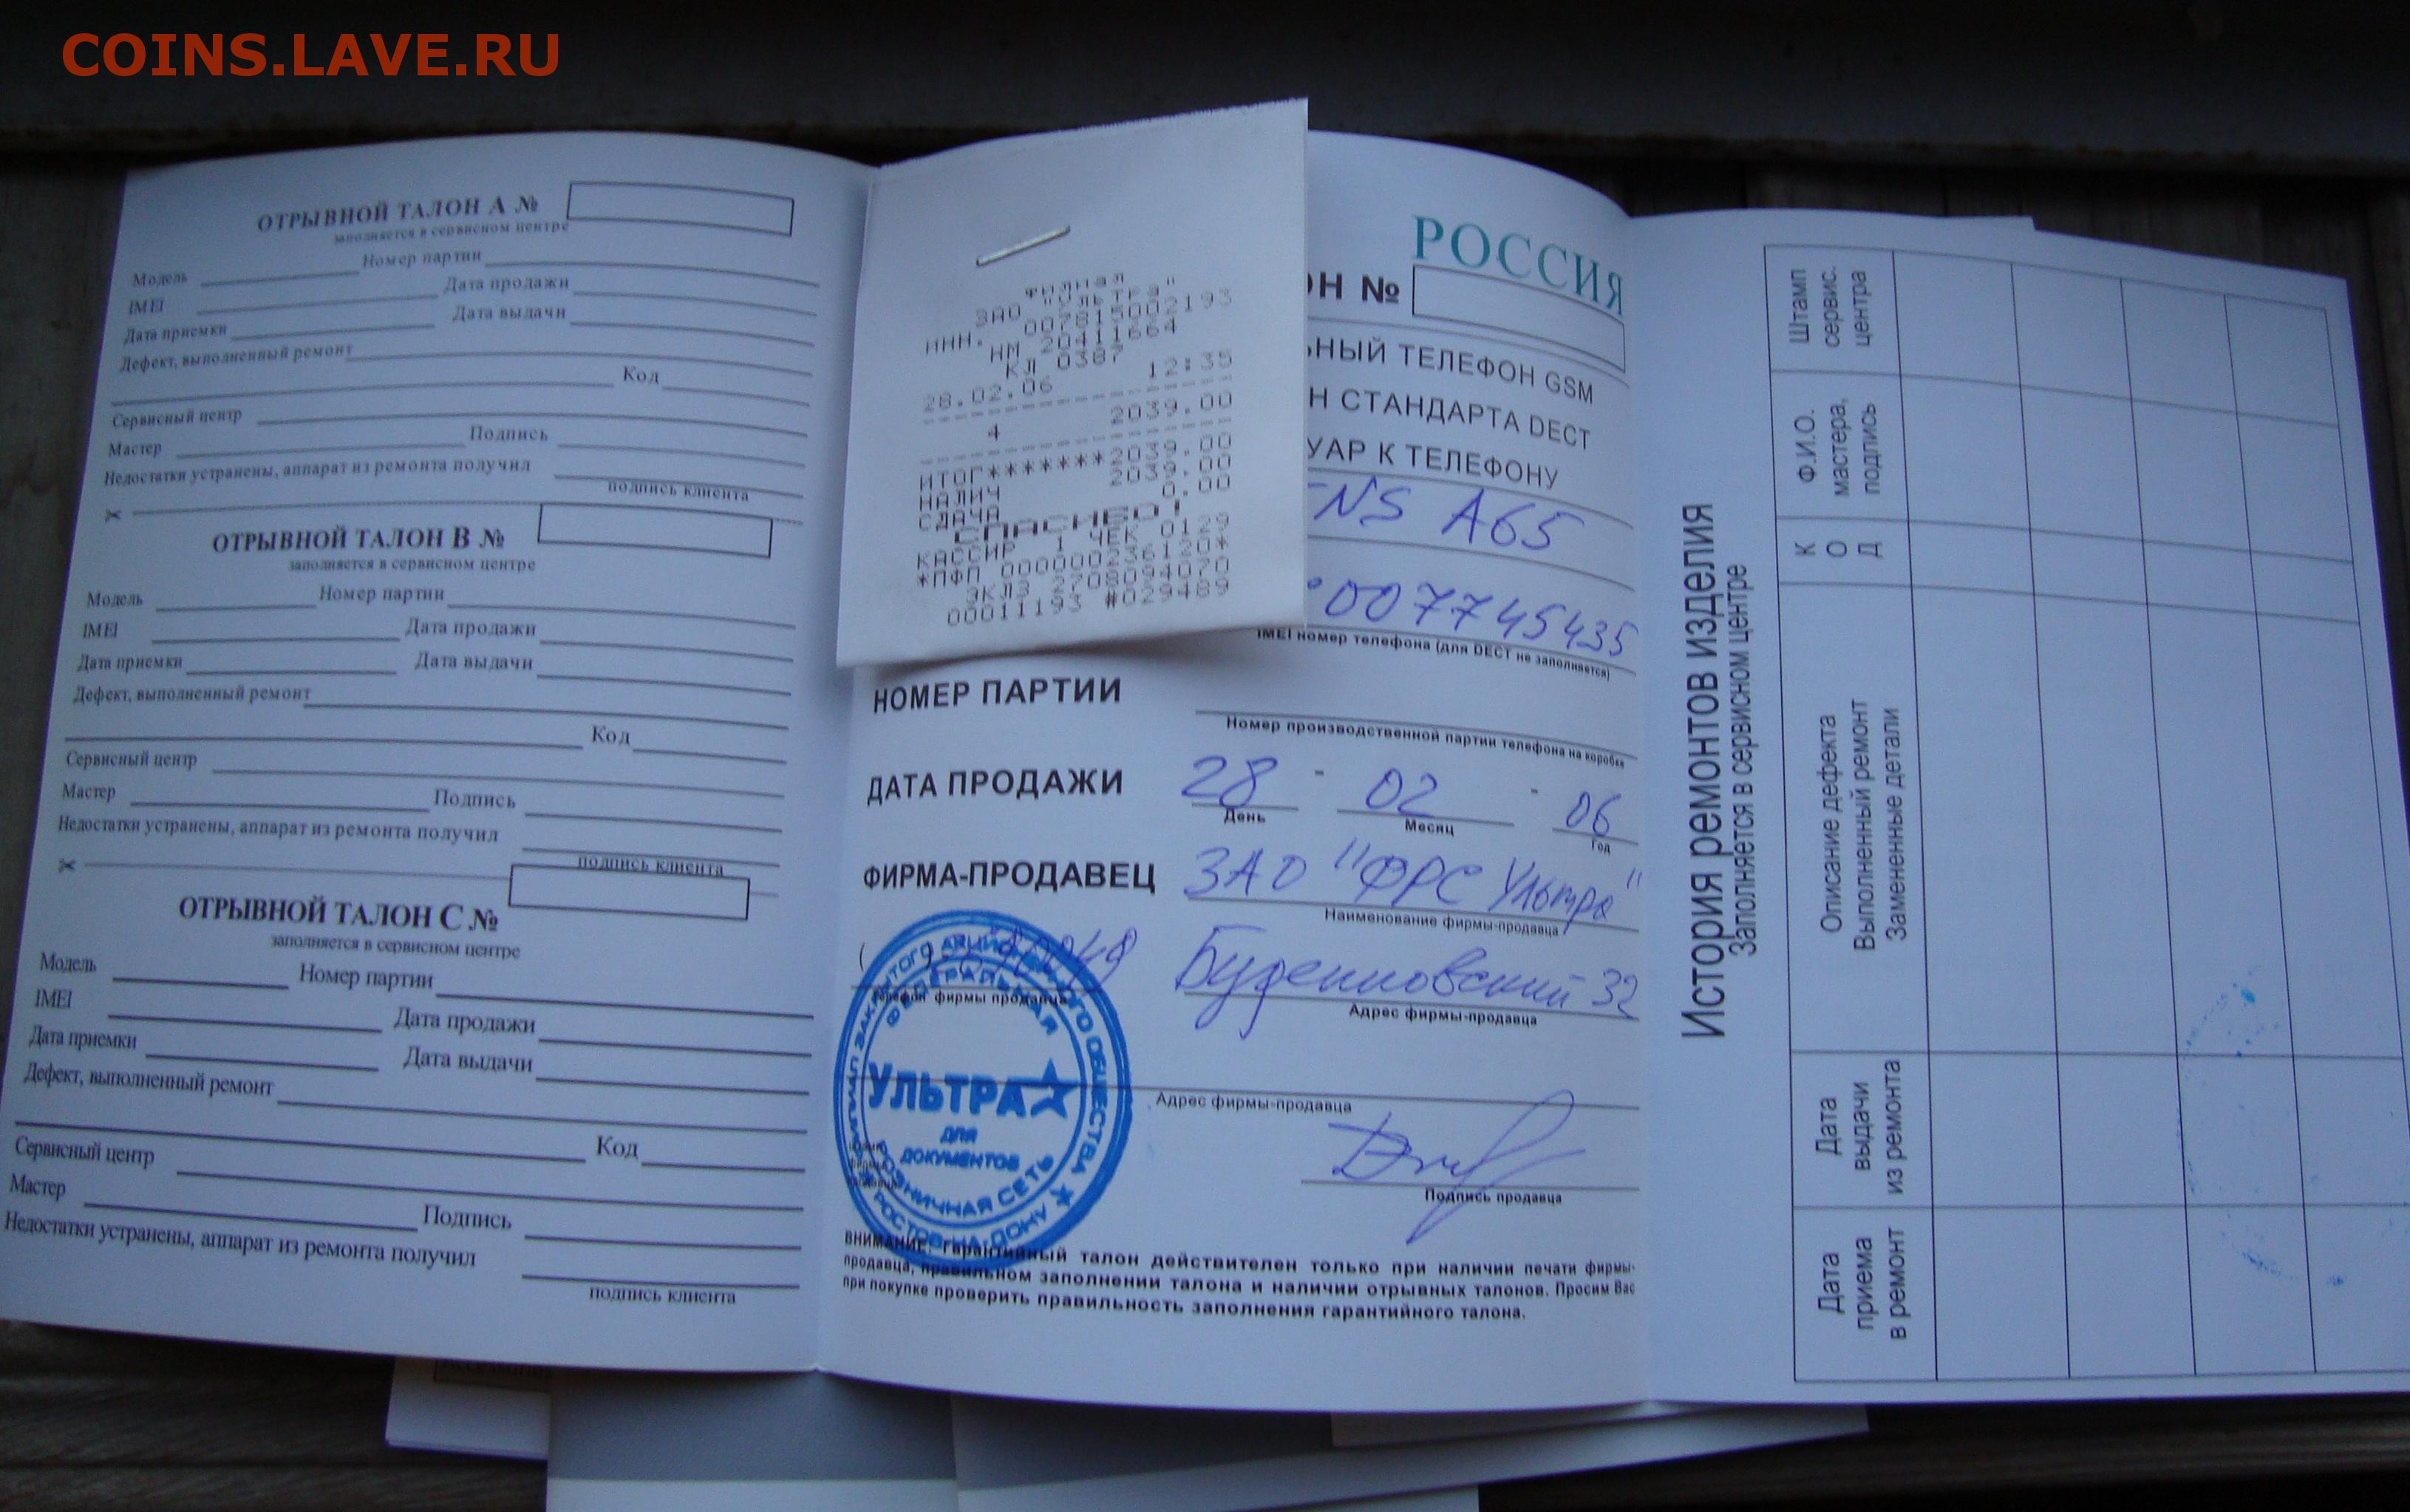 COINS.LAVE.RU
ОТРЫВНОЙ ТАЛОН А №
заполняется в сервисном центре
Модель Номер партии
IMEI Дата продажи
Дата приемки Дата выдачи
Дефект, выполненный ремонт
Код
Сервисный центр
Мастер Подпись
Недостатки устранены, аппарат из ремонта получил
подпись клиента
ОТРЫВНОЙ ТАЛОН В №
заполняется в сервисном центре
Модель Номер партии
IMEI Дата продажи
Дата приемки Дата выдачи
Дефект, выполненный ремонт
Код
Сервисный центр
Мастер Подпись
Недостатки устранены, аппарат из ремонта получил
подпись клиента
ОТРЫВНОЙ ТАЛОН С №
заполняется в сервисном центре
Модель Номер партии
IMEI Дата продажи
Дата приемки Дата выдачи
Дефект, выполненный ремонт
Код
Сервисный центр
Мастер Подпись
Недостатки устранены, аппарат из ремонта получил
подпись клиента
ФИЛИАЛ
ЗАО
ИНН.
НМ
КЛ 0387
28.02.06 12:35
2039.00
4
ИТОГ*******2039.00
НАЛИЧ 2039.00
СДАЧА 0.00
СПАСИБО!
КАССИР 1 ЧЕК
*ПФП
ЭКЛЗ
00011193 #029489
РОССИЯ
ОН №
ЬНЫЙ ТЕЛЕФОН GSM
Н СТАНДАРТА DECT
УАР К ТЕЛЕФОНУ
ENS A65
007745435
IMEI номер телефона (для DECT не заполняется)
НОМЕР ПАРТИИ
Номер производственной партии телефона на коробке
ДАТА ПРОДАЖИ 28 - 02 - 06
День Месяц Год
ФИРМА-ПРОДАВЕЦ ЗАО "ФРС Ультра"
Наименование фирмы-продавца
Буденновский 32
Телефон фирмы продавца Адрес фирмы-продавца
Адрес фирмы-продавца
Подпись продавца
ФИЛИАЛ ЗАКРЫТОГО АКЦИОНЕРНОГО ОБЩЕСТВА
ФЕДЕРАЛЬНАЯ
УЛЬТРА
ДЛЯ
ДОКУМЕНТОВ
РОЗНИЧНАЯ СЕТЬ
Г. РОСТОВ-НА-ДОНУ
ВНИМАНИЕ: Гарантийный талон действителен только при наличии печати фирмы-
продавца, правильном заполнении талона и наличии отрывных талонов. Просим Вас
при покупке проверить правильность заполнения гарантийного талона.
История ремонтов изделия
Заполняется в сервисном центре
Дата
приема
в ремонт
Дата
выдачи
из ремонта
Описание дефекта
Выполненный ремонт
Замененные детали
К
О
Д
Ф.И.О.
мастера,
подпись
Штамп
сервис.
центра